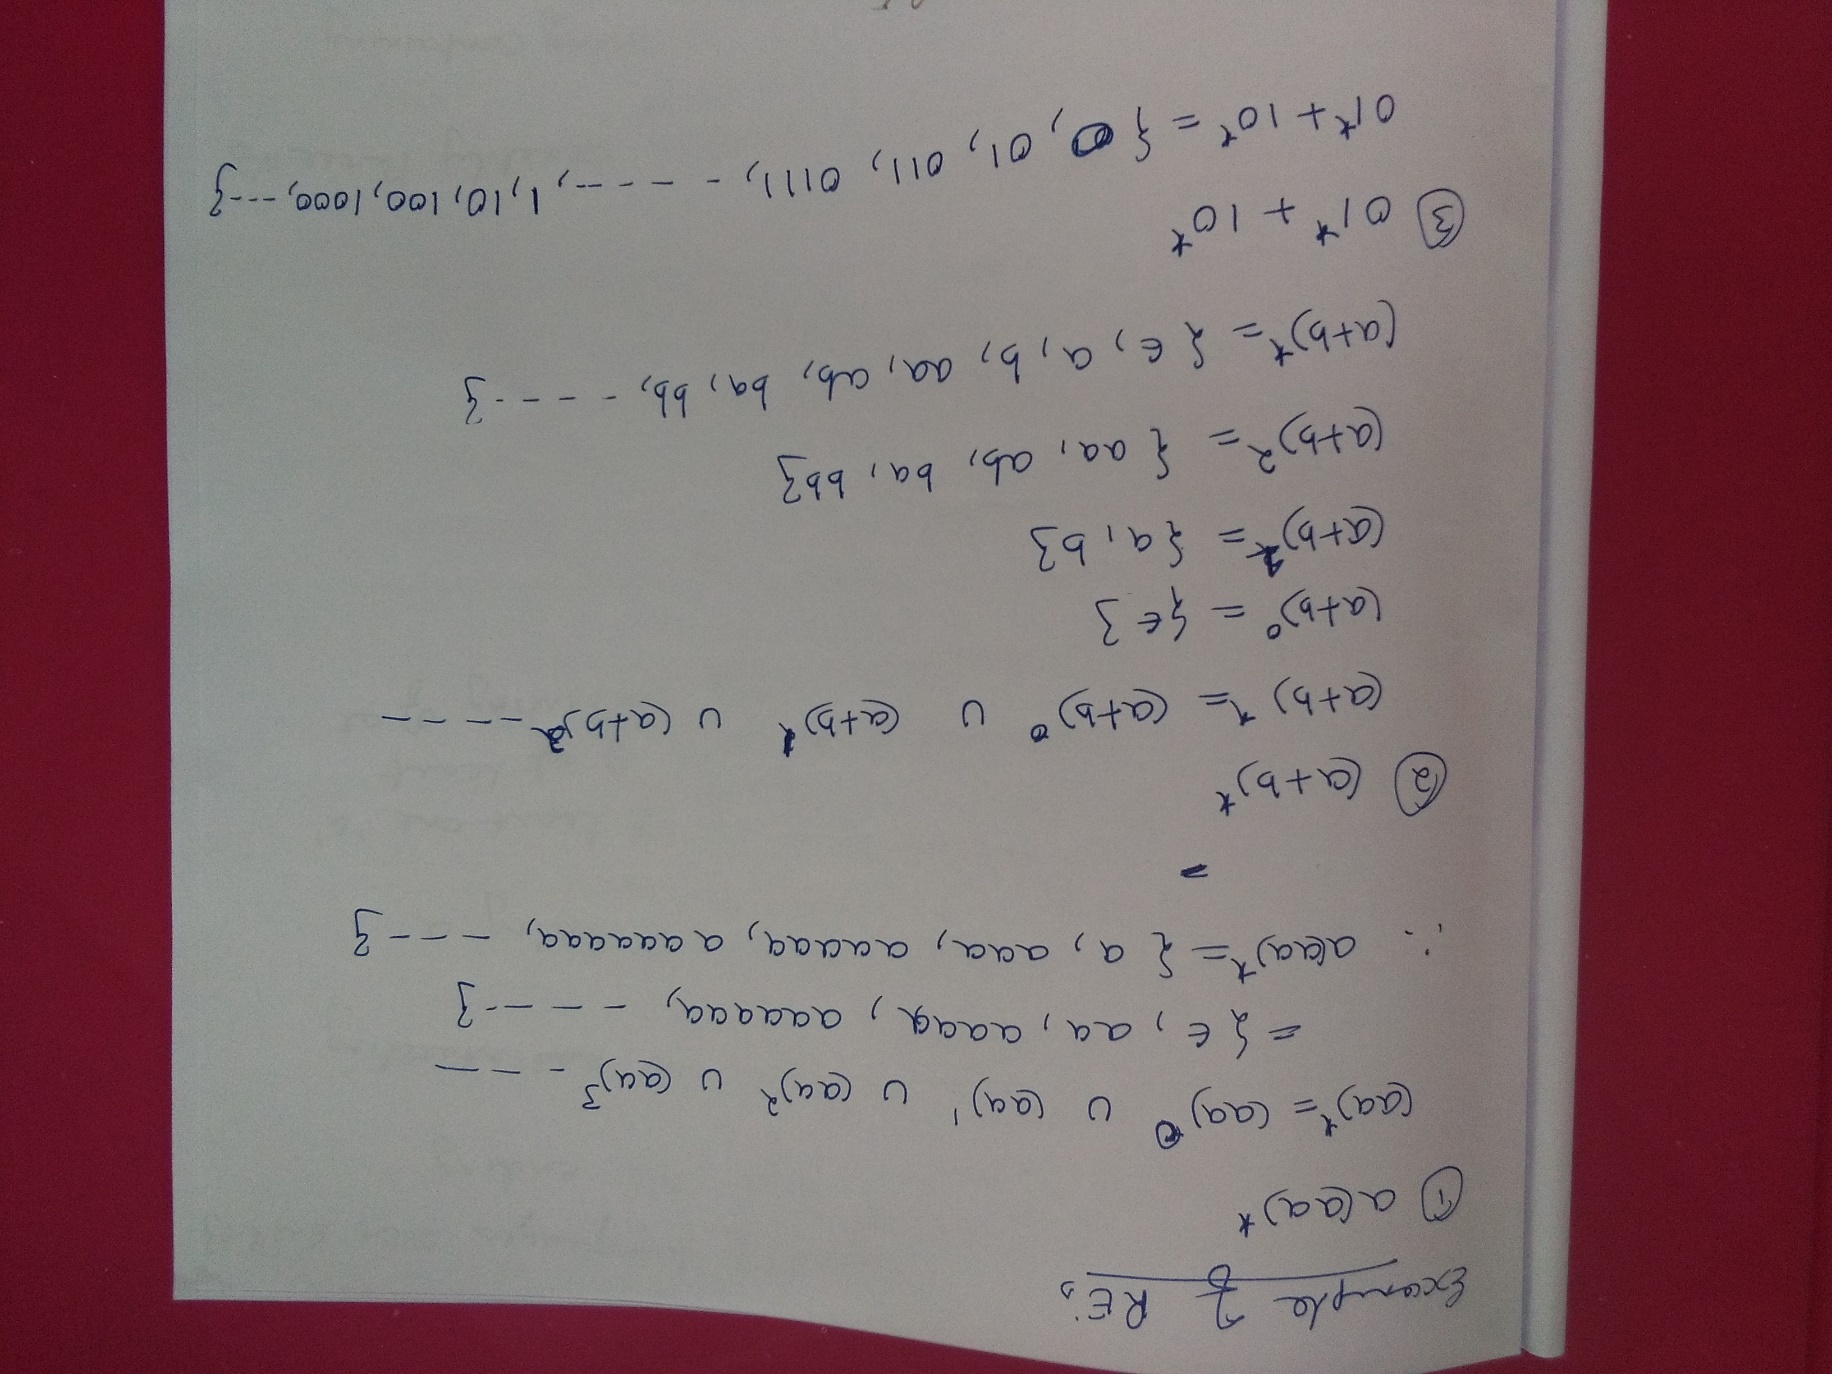 Example of REs
① a(aa)*
(aa)* = (aa)⁰ ∪ (aa)¹ ∪ (aa)² ∪ (aa)³ - - - -
= {ε, aa, aaaa, aaaaaa, - - - - }
∴ a(aa)* = {a, aaa, aaaaa, aaaaaaa, - - - }
=
② (a+b)*
(a+b)* = (a+b)⁰ ∪ (a+b)¹ ∪ (a+b)² - - - -
(a+b)⁰ = {ε}
(a+b)¹ = {a, b}
(a+b)² = {aa, ab, ba, bb}
(a+b)* = {ε, a, b, aa, ab, ba, bb, - - - - }
③ 01* + 10*
01* + 10* = {0, 01, 011, 0111, - - - - -, 1, 10, 100, 1000, - - - }